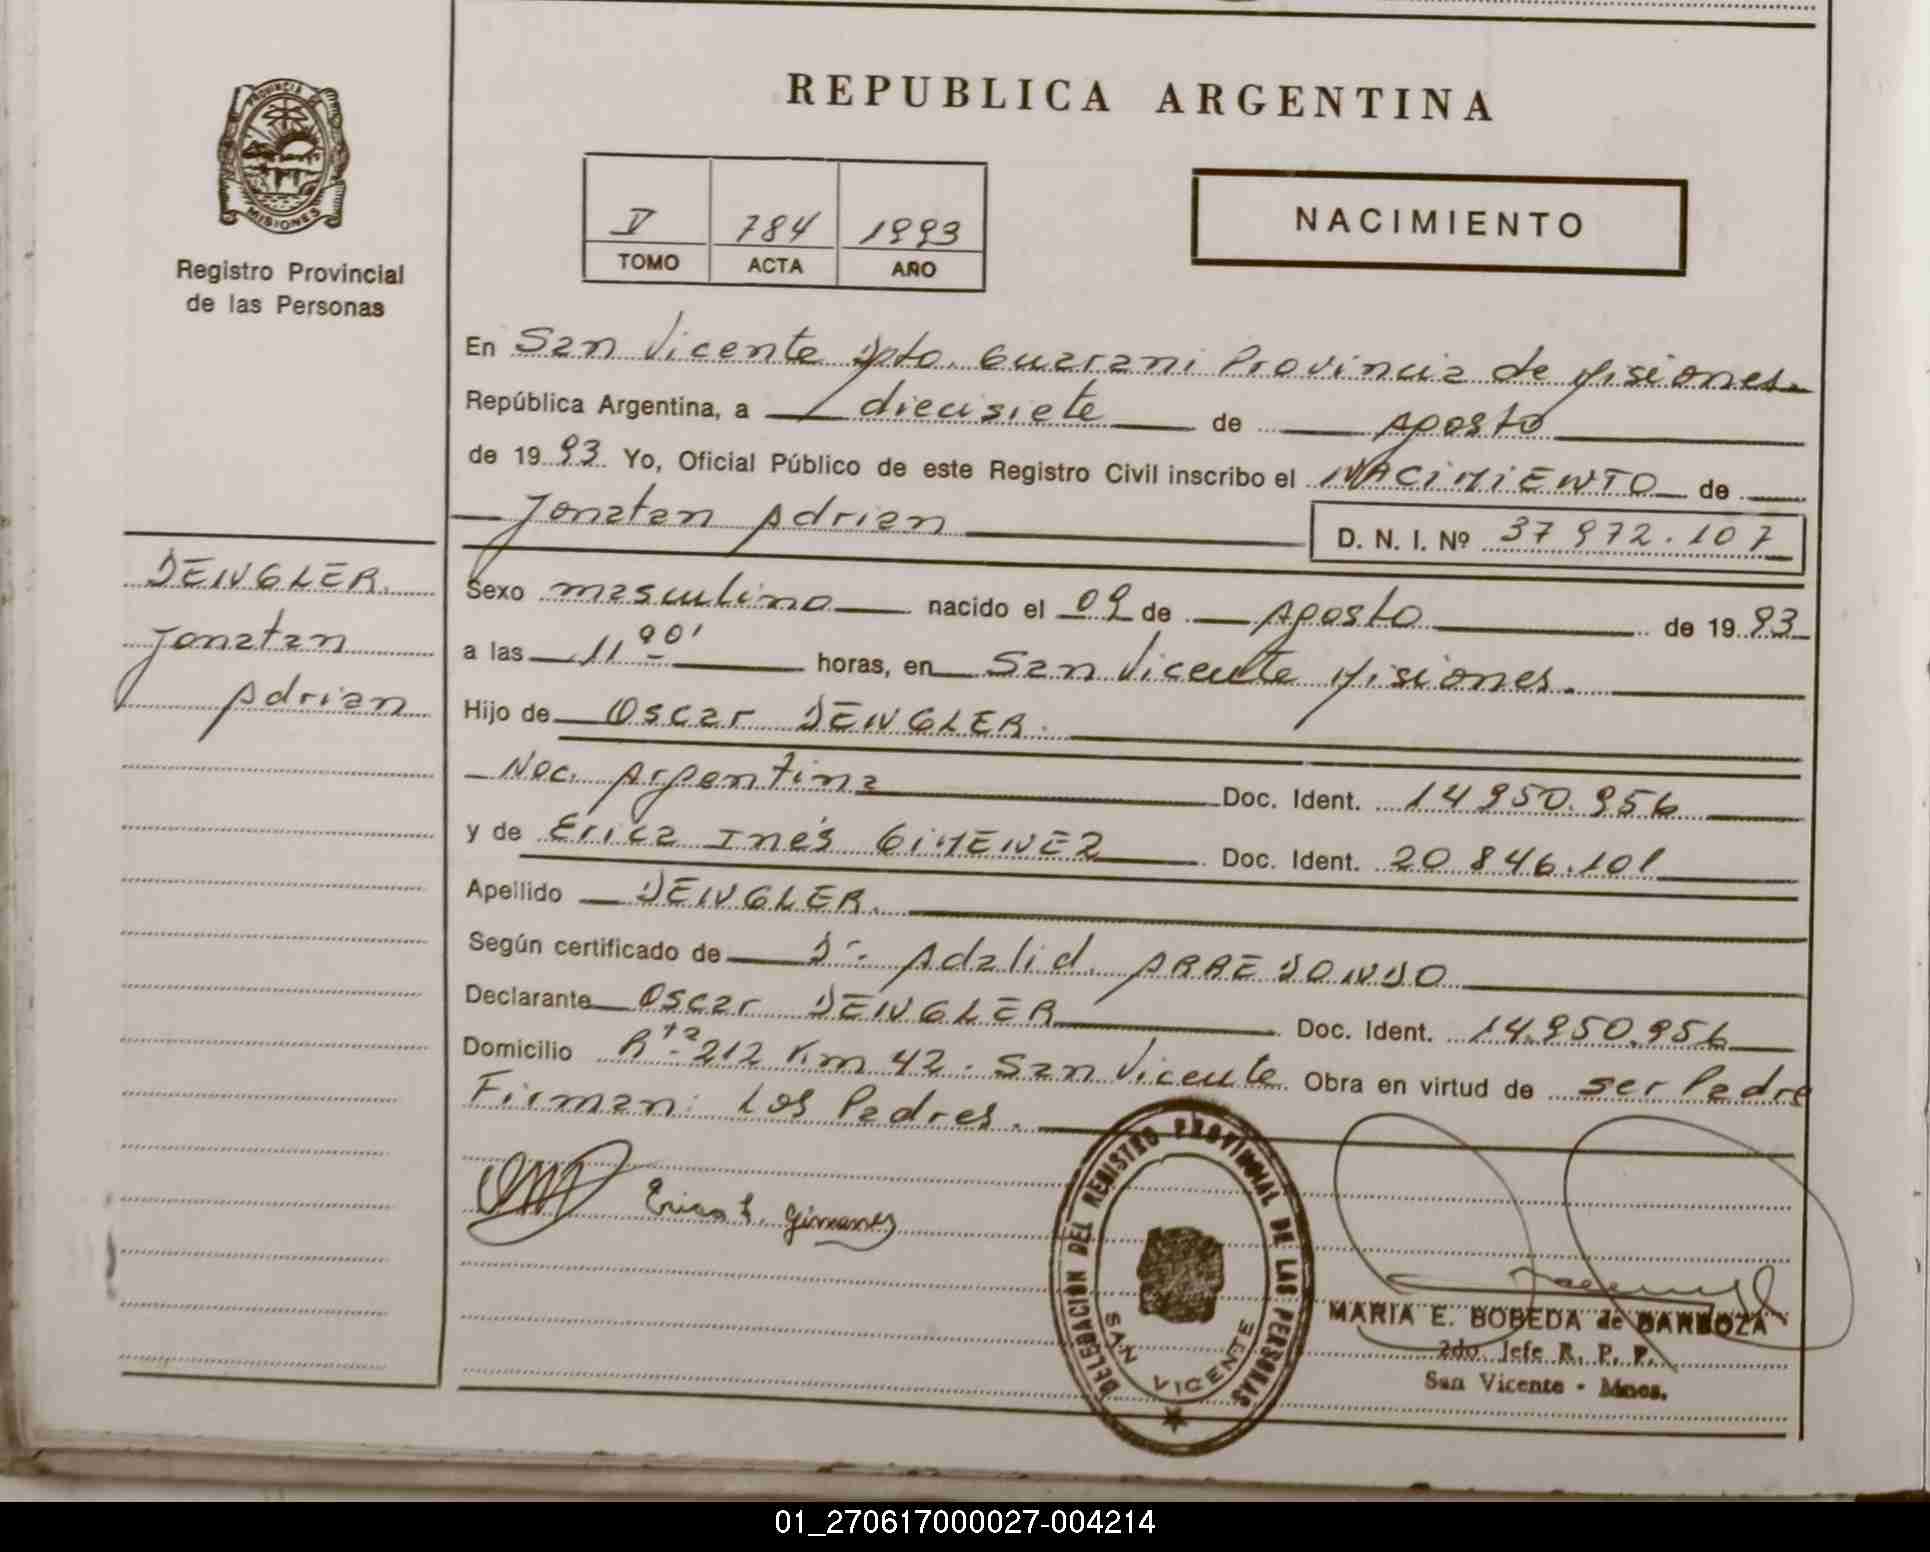 REPUBLICA ARGENTINA
PROVINCIA DE
MISIONES
Registro Provincial
de las Personas
V 784 1993
TOMO ACTA AÑO
NACIMIENTO
En San Vicente Dpto. Guarani Provincia de Misiones
República Argentina, a diecisiete de Agosto
de 1993 Yo, Oficial Público de este Registro Civil inscribo el NACIMIENTO de
Jonatan Adrian
D. N. I. Nº 37 972.107
DENGLER.
Jonatan
Adrian
Sexo masculino nacido el 09 de Agosto de 1993
a las 11 horas, en San Vicente Misiones.
Hijo de Oscar DENGLER.
Nac. Argentina Doc. Ident. 14 950.956
y de Erica Inés GIMENEZ Doc. Ident. 20 846.101
Apellido DENGLER.
Según certificado de Adalid ARREDONDO
Declarante Oscar DENGLER Doc. Ident. 14.950.956
Domicilio Rta 212 Km 42. San Vicente Obra en virtud de ser Padre
Firman: Los Padres.
Erica I. Gimenez
DELEGACIÓN DEL REGISTRO PROVINCIAL DE LAS PERSONAS
SAN VICENTE
MARIA E. BOBEDA de BARBOZA
2do. Jefe R. P. P.
San Vicente - Mnes.
01_270617000027-004214